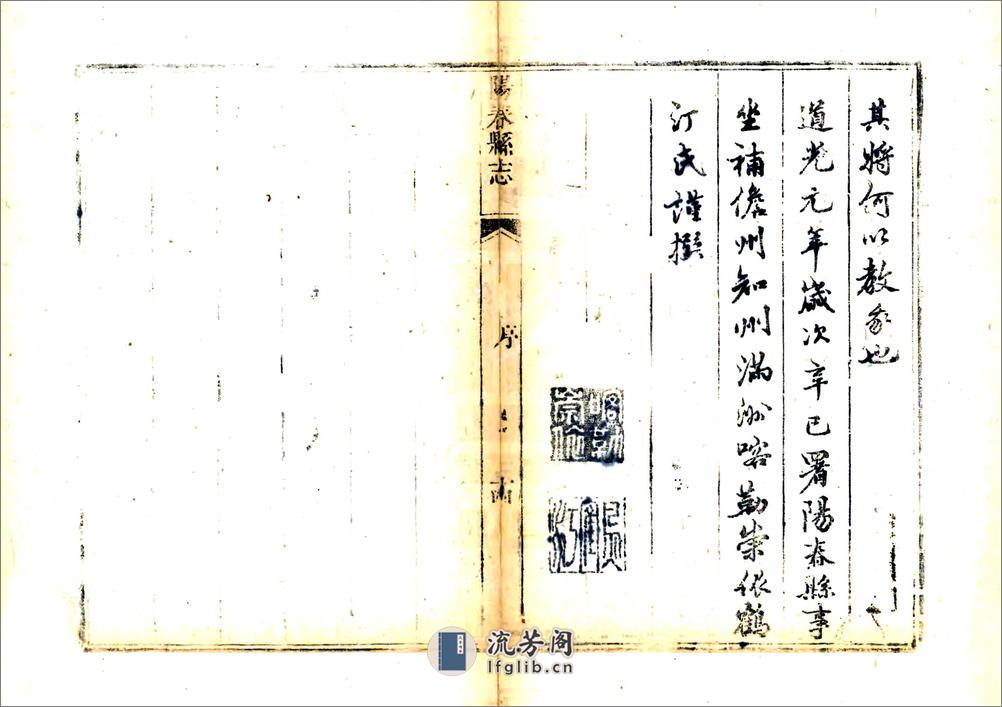 其將何以教我也
道光元年歲次辛巳署陽春縣事
坐補儋州知州滿洲喀勒崇依鶴
汀氏謹撰
陽春縣志
序
流芳阁
lfglib.cn